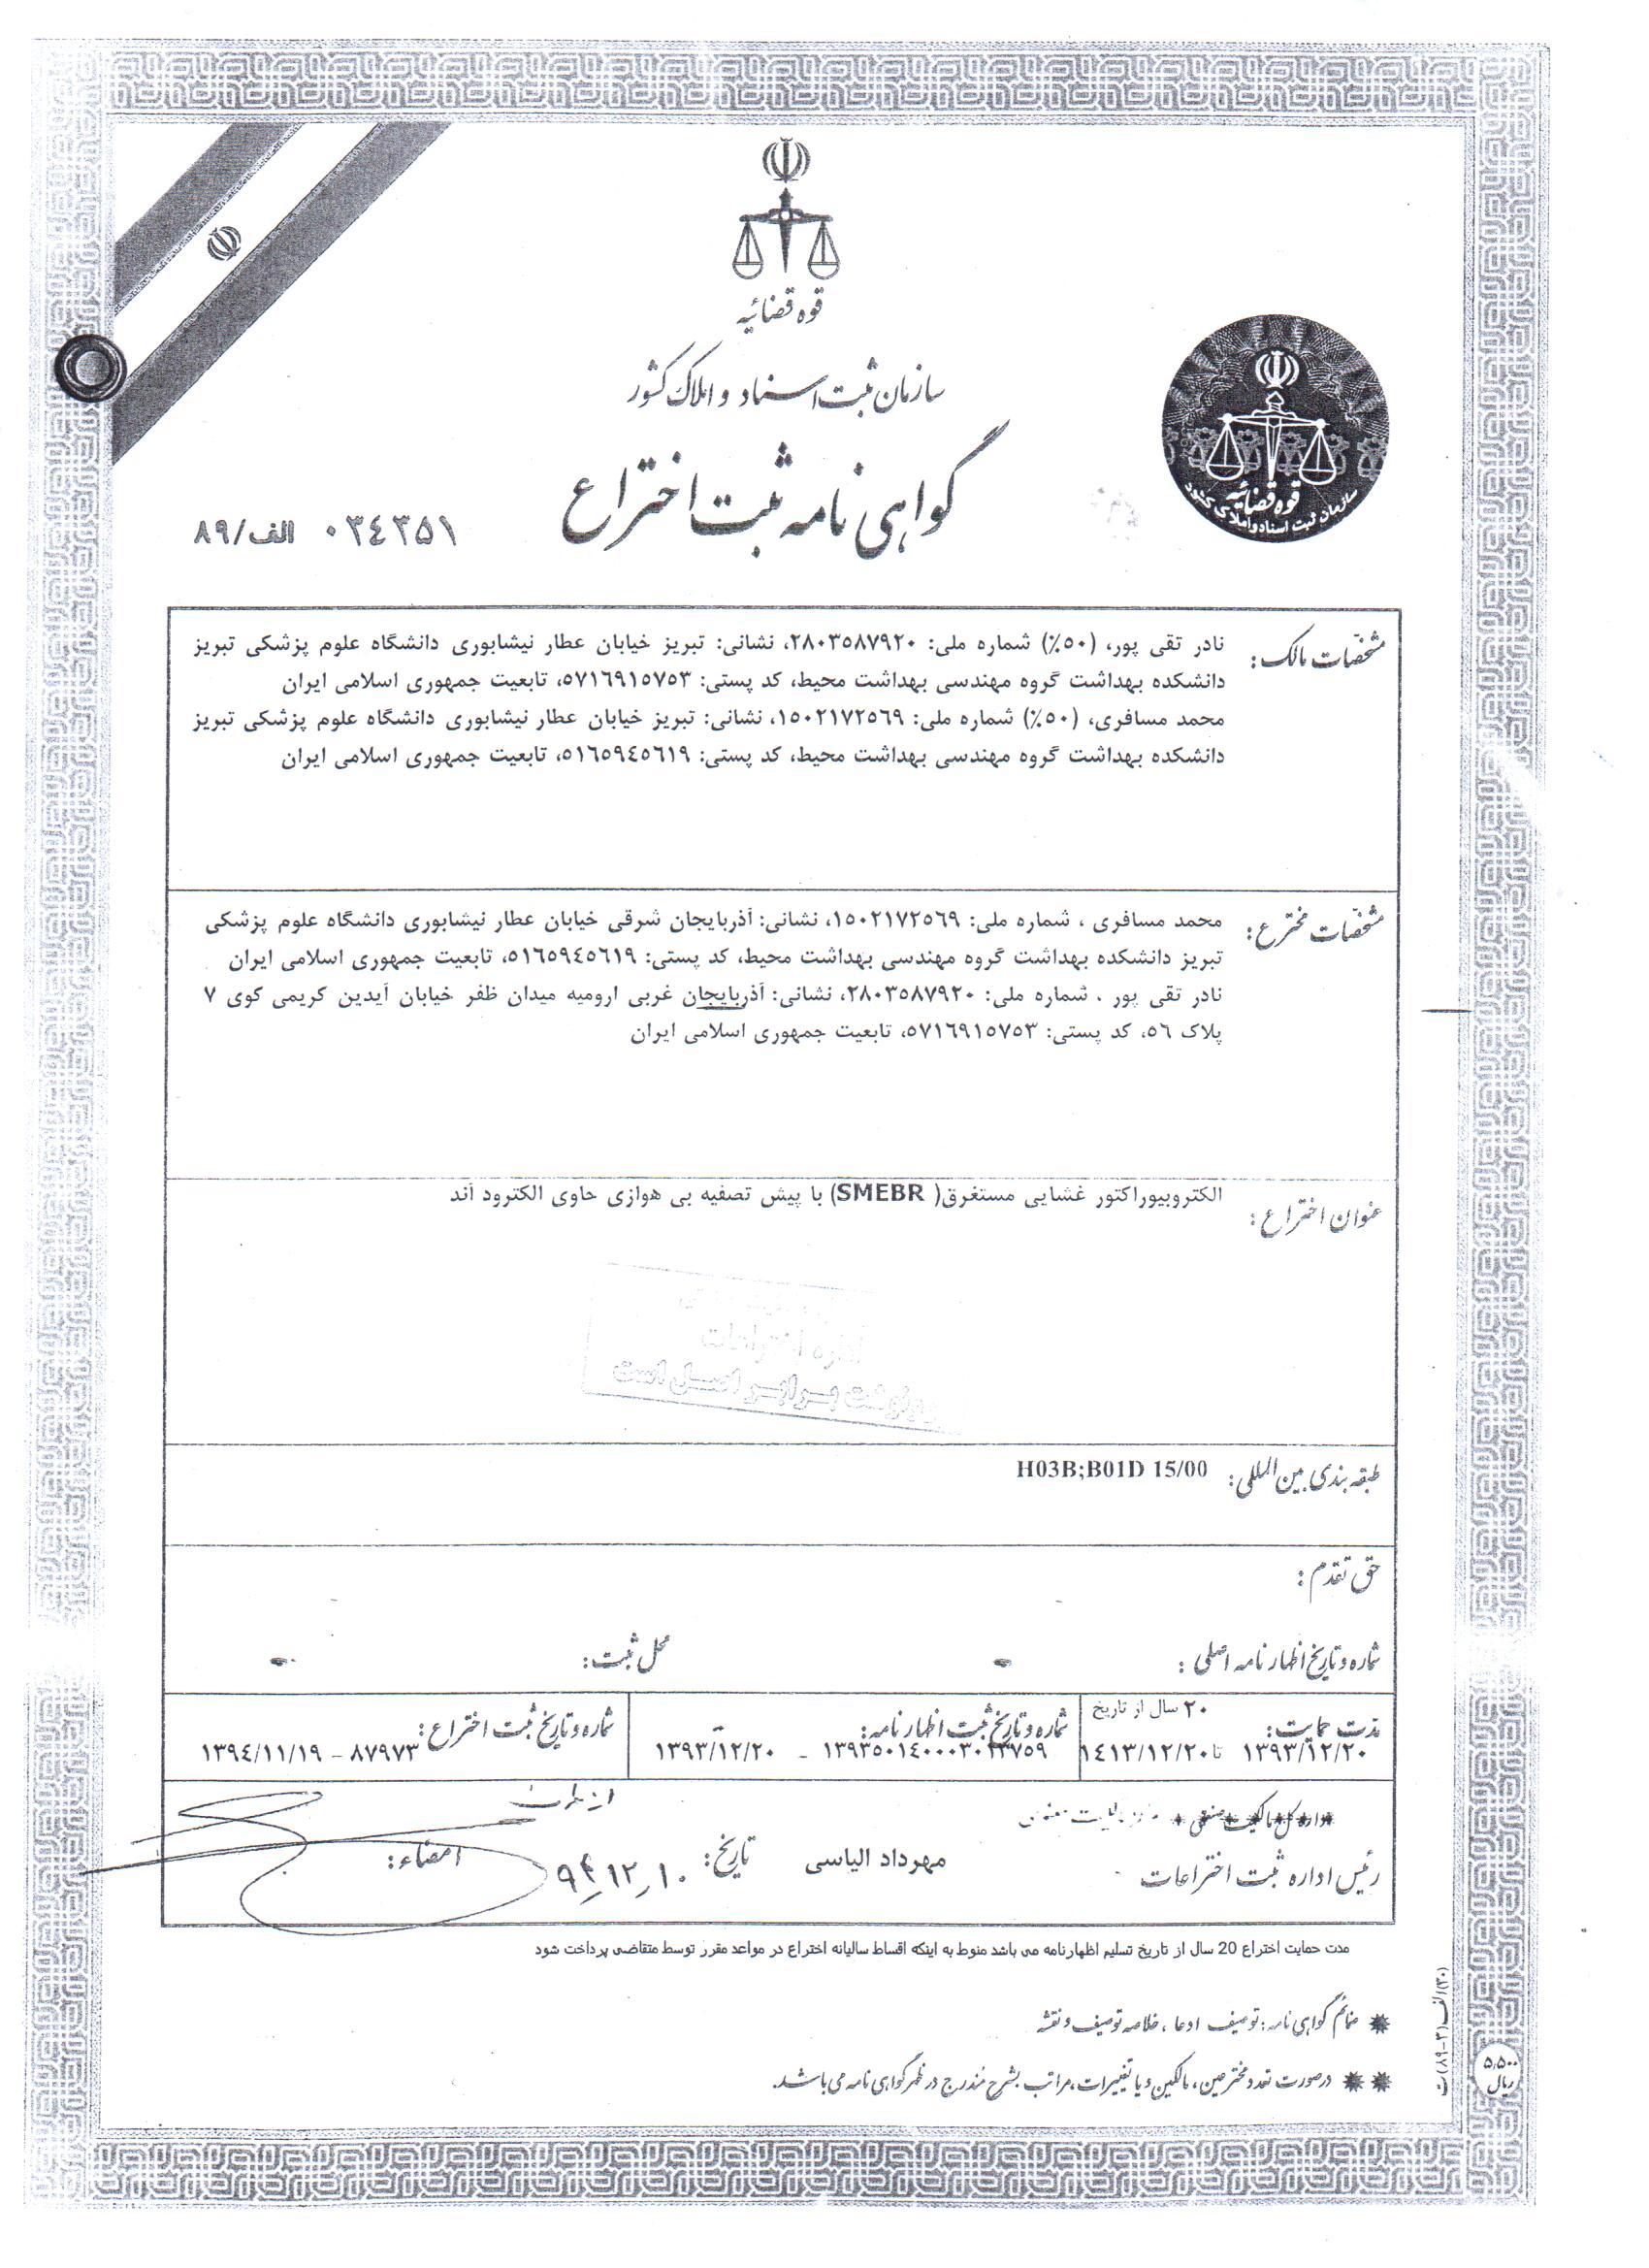 قوه قضائیه
سازمان ثبت اسناد و املاک کشور
گواهی نامه ثبت اختراع
۰۳٤۳٥۱ الف/۸۹
قوه قضائیه
سازمان ثبت اسناد و املاک کشور
مشخصات مالک:
نادر تقی پور، (۵۰٪) شماره ملی: ۲۸۰۳۵۸۷۹۲۰، نشانی: تبریز خیابان عطار نیشابوری دانشگاه علوم پزشکی تبریز
دانشکده بهداشت گروه مهندسی بهداشت محیط، کد پستی: ۵۷۱۶۹۱۵۷۵۳، تابعیت جمهوری اسلامی ایران
محمد مسافری، (۵۰٪) شماره ملی: ۱۵۰۲۱۷۲۵۶۹، نشانی: تبریز خیابان عطار نیشابوری دانشگاه علوم پزشکی تبریز
دانشکده بهداشت گروه مهندسی بهداشت محیط، کد پستی: ٥١٦٥٩٤٥٦١٩، تابعیت جمهوری اسلامی ایران
مشخصات مخترع:
محمد مسافری ، شماره ملی: ۱۵۰۲۱۷۲۵۶۹، نشانی: آذربایجان شرقی خیابان عطار نیشابوری دانشگاه علوم پزشکی
تبریز دانشکده بهداشت گروه مهندسی بهداشت محیط، کد پستی: ٥١٦٥٩٤٥٦١٩، تابعیت جمهوری اسلامی ایران
نادر تقی پور ، شماره ملی: ۲۸۰۳۵۸۷۹۲۰، نشانی: آذربایجان غربی ارومیه میدان ظفر خیابان آیدین کریمی کوی ۷
پلاک ٥٦، کد پستی: ۵۷۱۶۹۱۵۷۵۳، تابعیت جمهوری اسلامی ایران
عنوان اختراع:
الکتروبیوراکتور غشایی مستغرق( SMEBR) با پیش تصفیه بی هوازی حاوی الکترود آند
اداره اختراعات
رونوشت برابر اصل است
طبقه بندی بین المللی: H03B;B01D 15/00
حق تقدم:
شماره و تاریخ اظهار نامه اصلی: - محل ثبت: -
مدت حمایت: ۲۰ سال از تاریخ
۱۳۹۳/۱۲/۲۰ تا ۱٤۱۳/۱۲/۲۰
شماره و تاریخ ثبت اظهار نامه:
۱۳۹۳/۱۲/۲۰ -
شماره و تاریخ ثبت اختراع:
۸۷۹۷۳ - ۱۳۹٤/۱۱/۱۹
اداره کل مالکیت صنعتی
رئیس اداره ثبت اختراعات مهرداد الیاسی تاریخ: ۹۴/۱۲/۱۰ امضاء:
از طرف
مدت حمایت اختراع 20 سال از تاریخ تسلیم اظهارنامه می باشد منوط به اینکه اقساط سالیانه اختراع در مواعد مقرر توسط متقاضی پرداخت شود
ضمائم گواهی نامه: توصیف ادعا، خلاصه توصیف و نقشه
درصورت تعدد مخترعین، مالکین و یا تغییرات، مراتب بشرح مندرج در ظهر گواهی نامه می باشد.
۵,۵۰۰
ریال